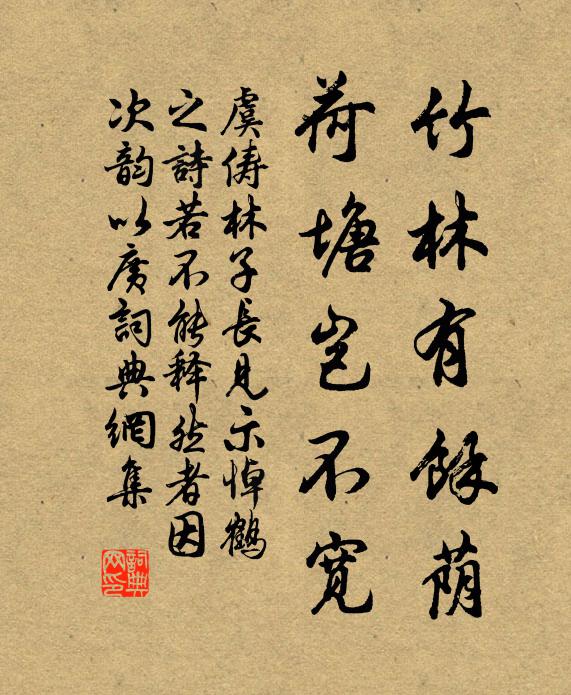 竹林有餘荫
荷塘岂不寛
虞俦林子長見示悼鶴
之詩若不能释然者因
次韵以广詞典網集
詞典网印